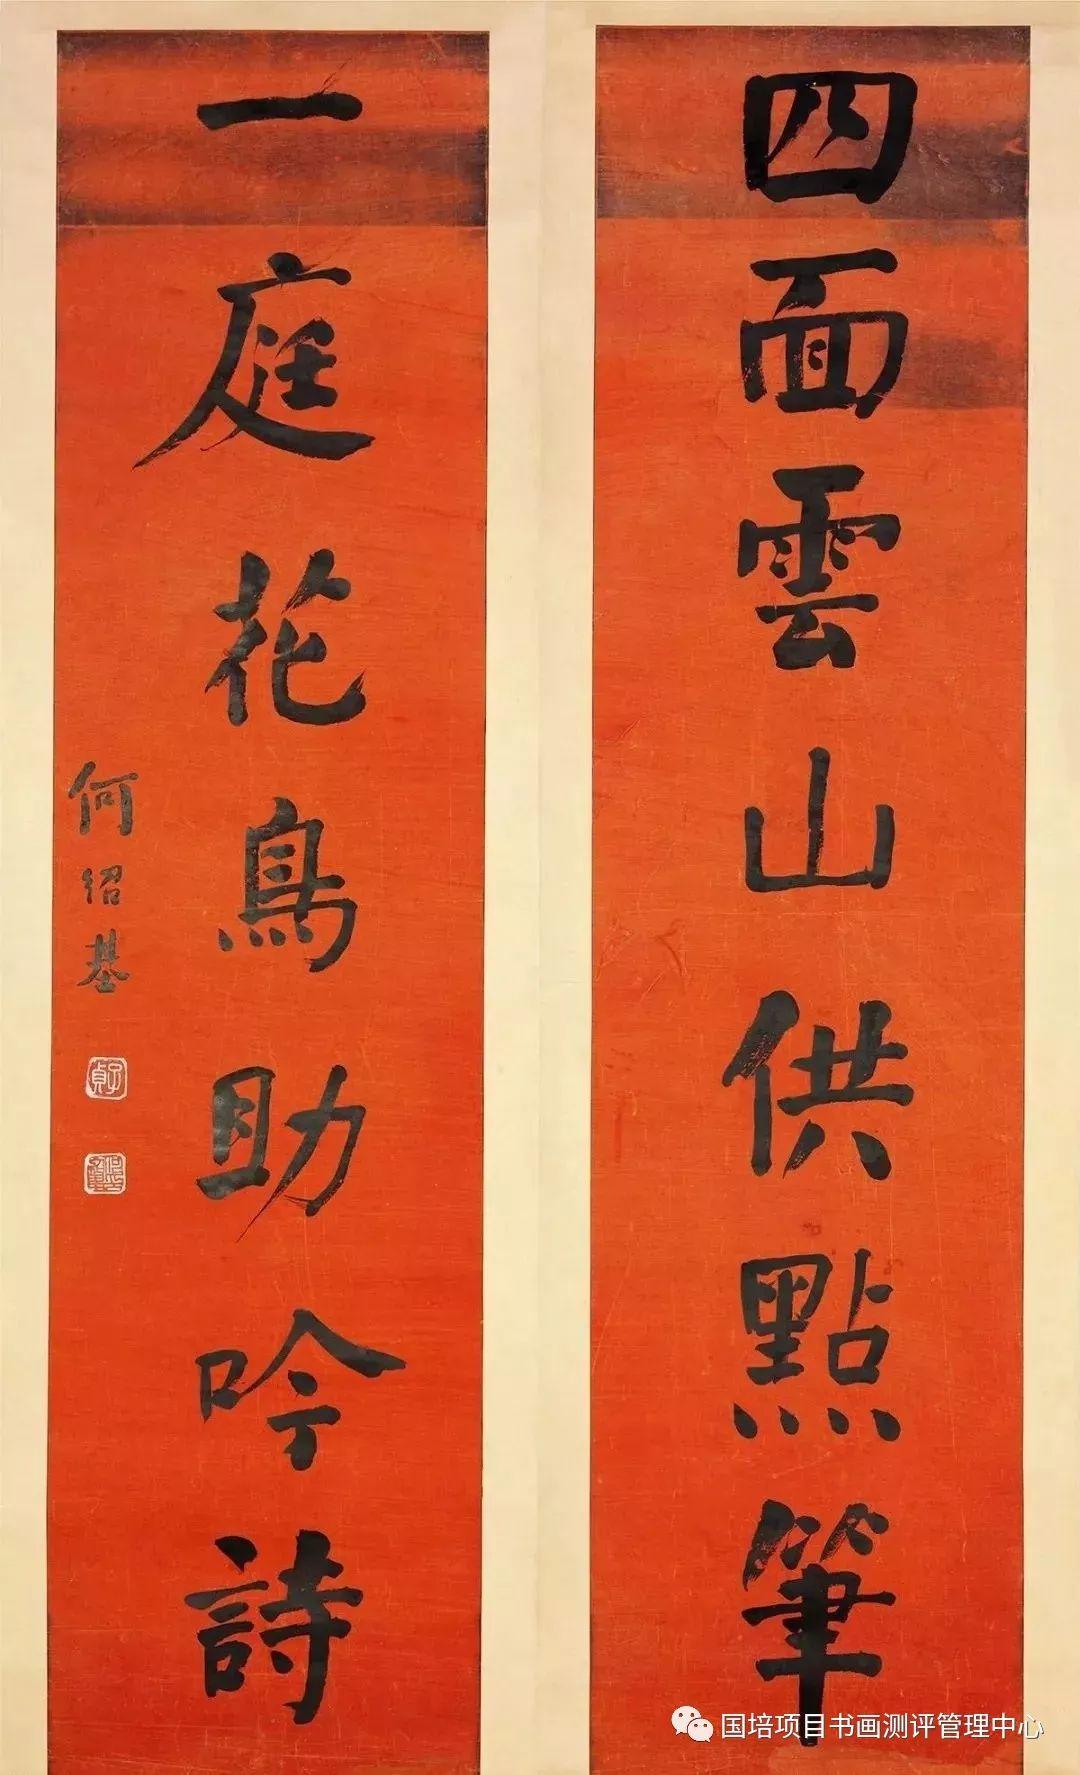 四面雲山供點筆
一庭花鳥助吟詩
何紹基
子貞
国培项目书画测评管理中心